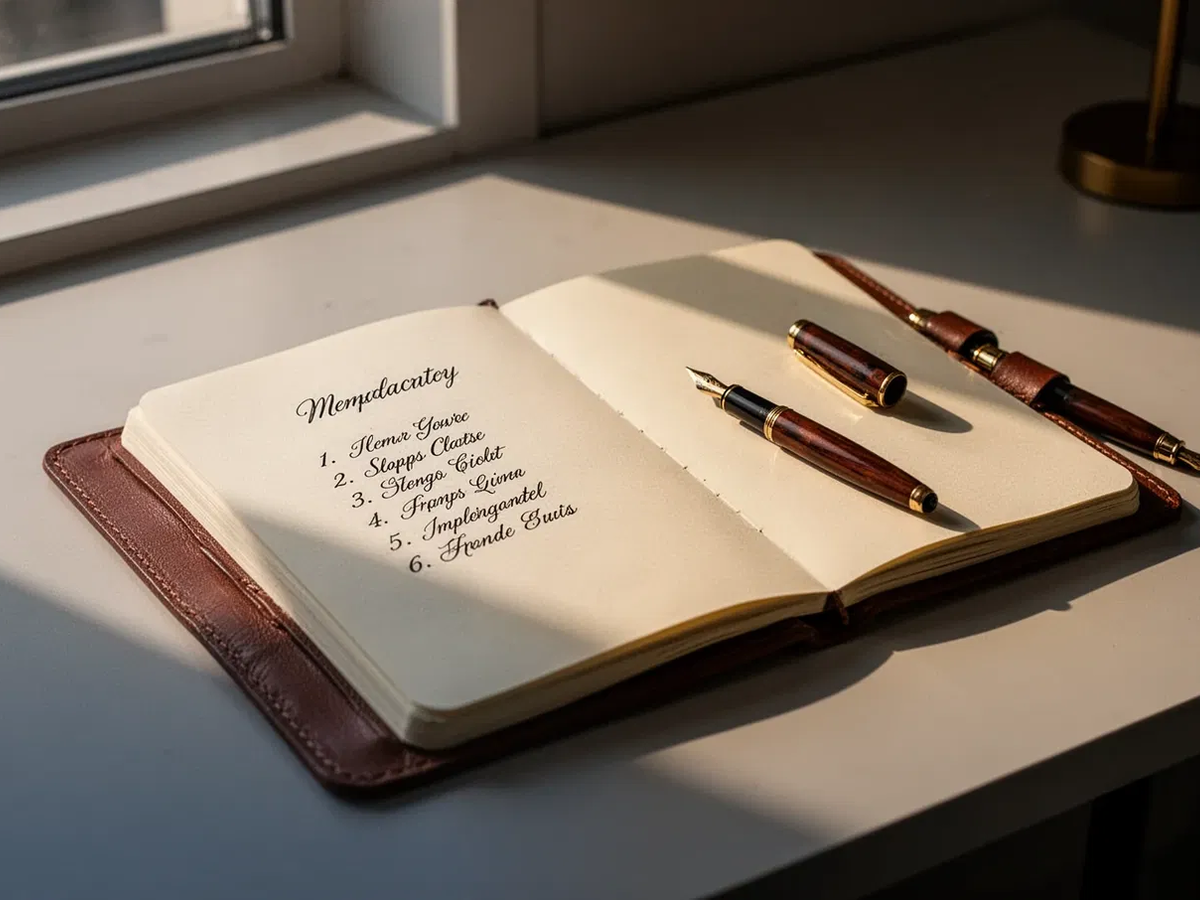 Mempdacntey
1. Hemr Yowee
2. Slopps Clatse
3. Slengo Ciolet
4. Franps Livnn
5. Implengandel
6. Hrande Euuis